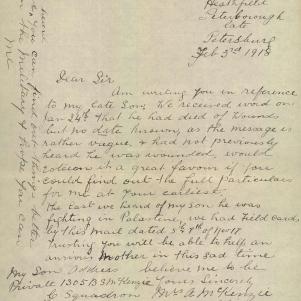 Heathfield
Peterborough
late
Petersburg
Feb 3rd 1918
Dear Sir
Am writing you in reference
to my late Son, We received word on
Jan 24th that he had died of Wounds
but no date known, as the message is
rather vague, & had not previously
heard he was wounded, would
esteem it a great favour if you
could find out the full particulars
for me at your earliest.
The last we heard of my son he was
fighting in Palestine, we had Field Cards
by this Mail dated
trusting you will be able to help an
anxious Mother in this sad time
My Son Address believe me to be
Private 1305 B S McKenzie Yours Sincerely
C Squadron Mrs A McKenzie
you can find out things better
the Military & hope you can
me